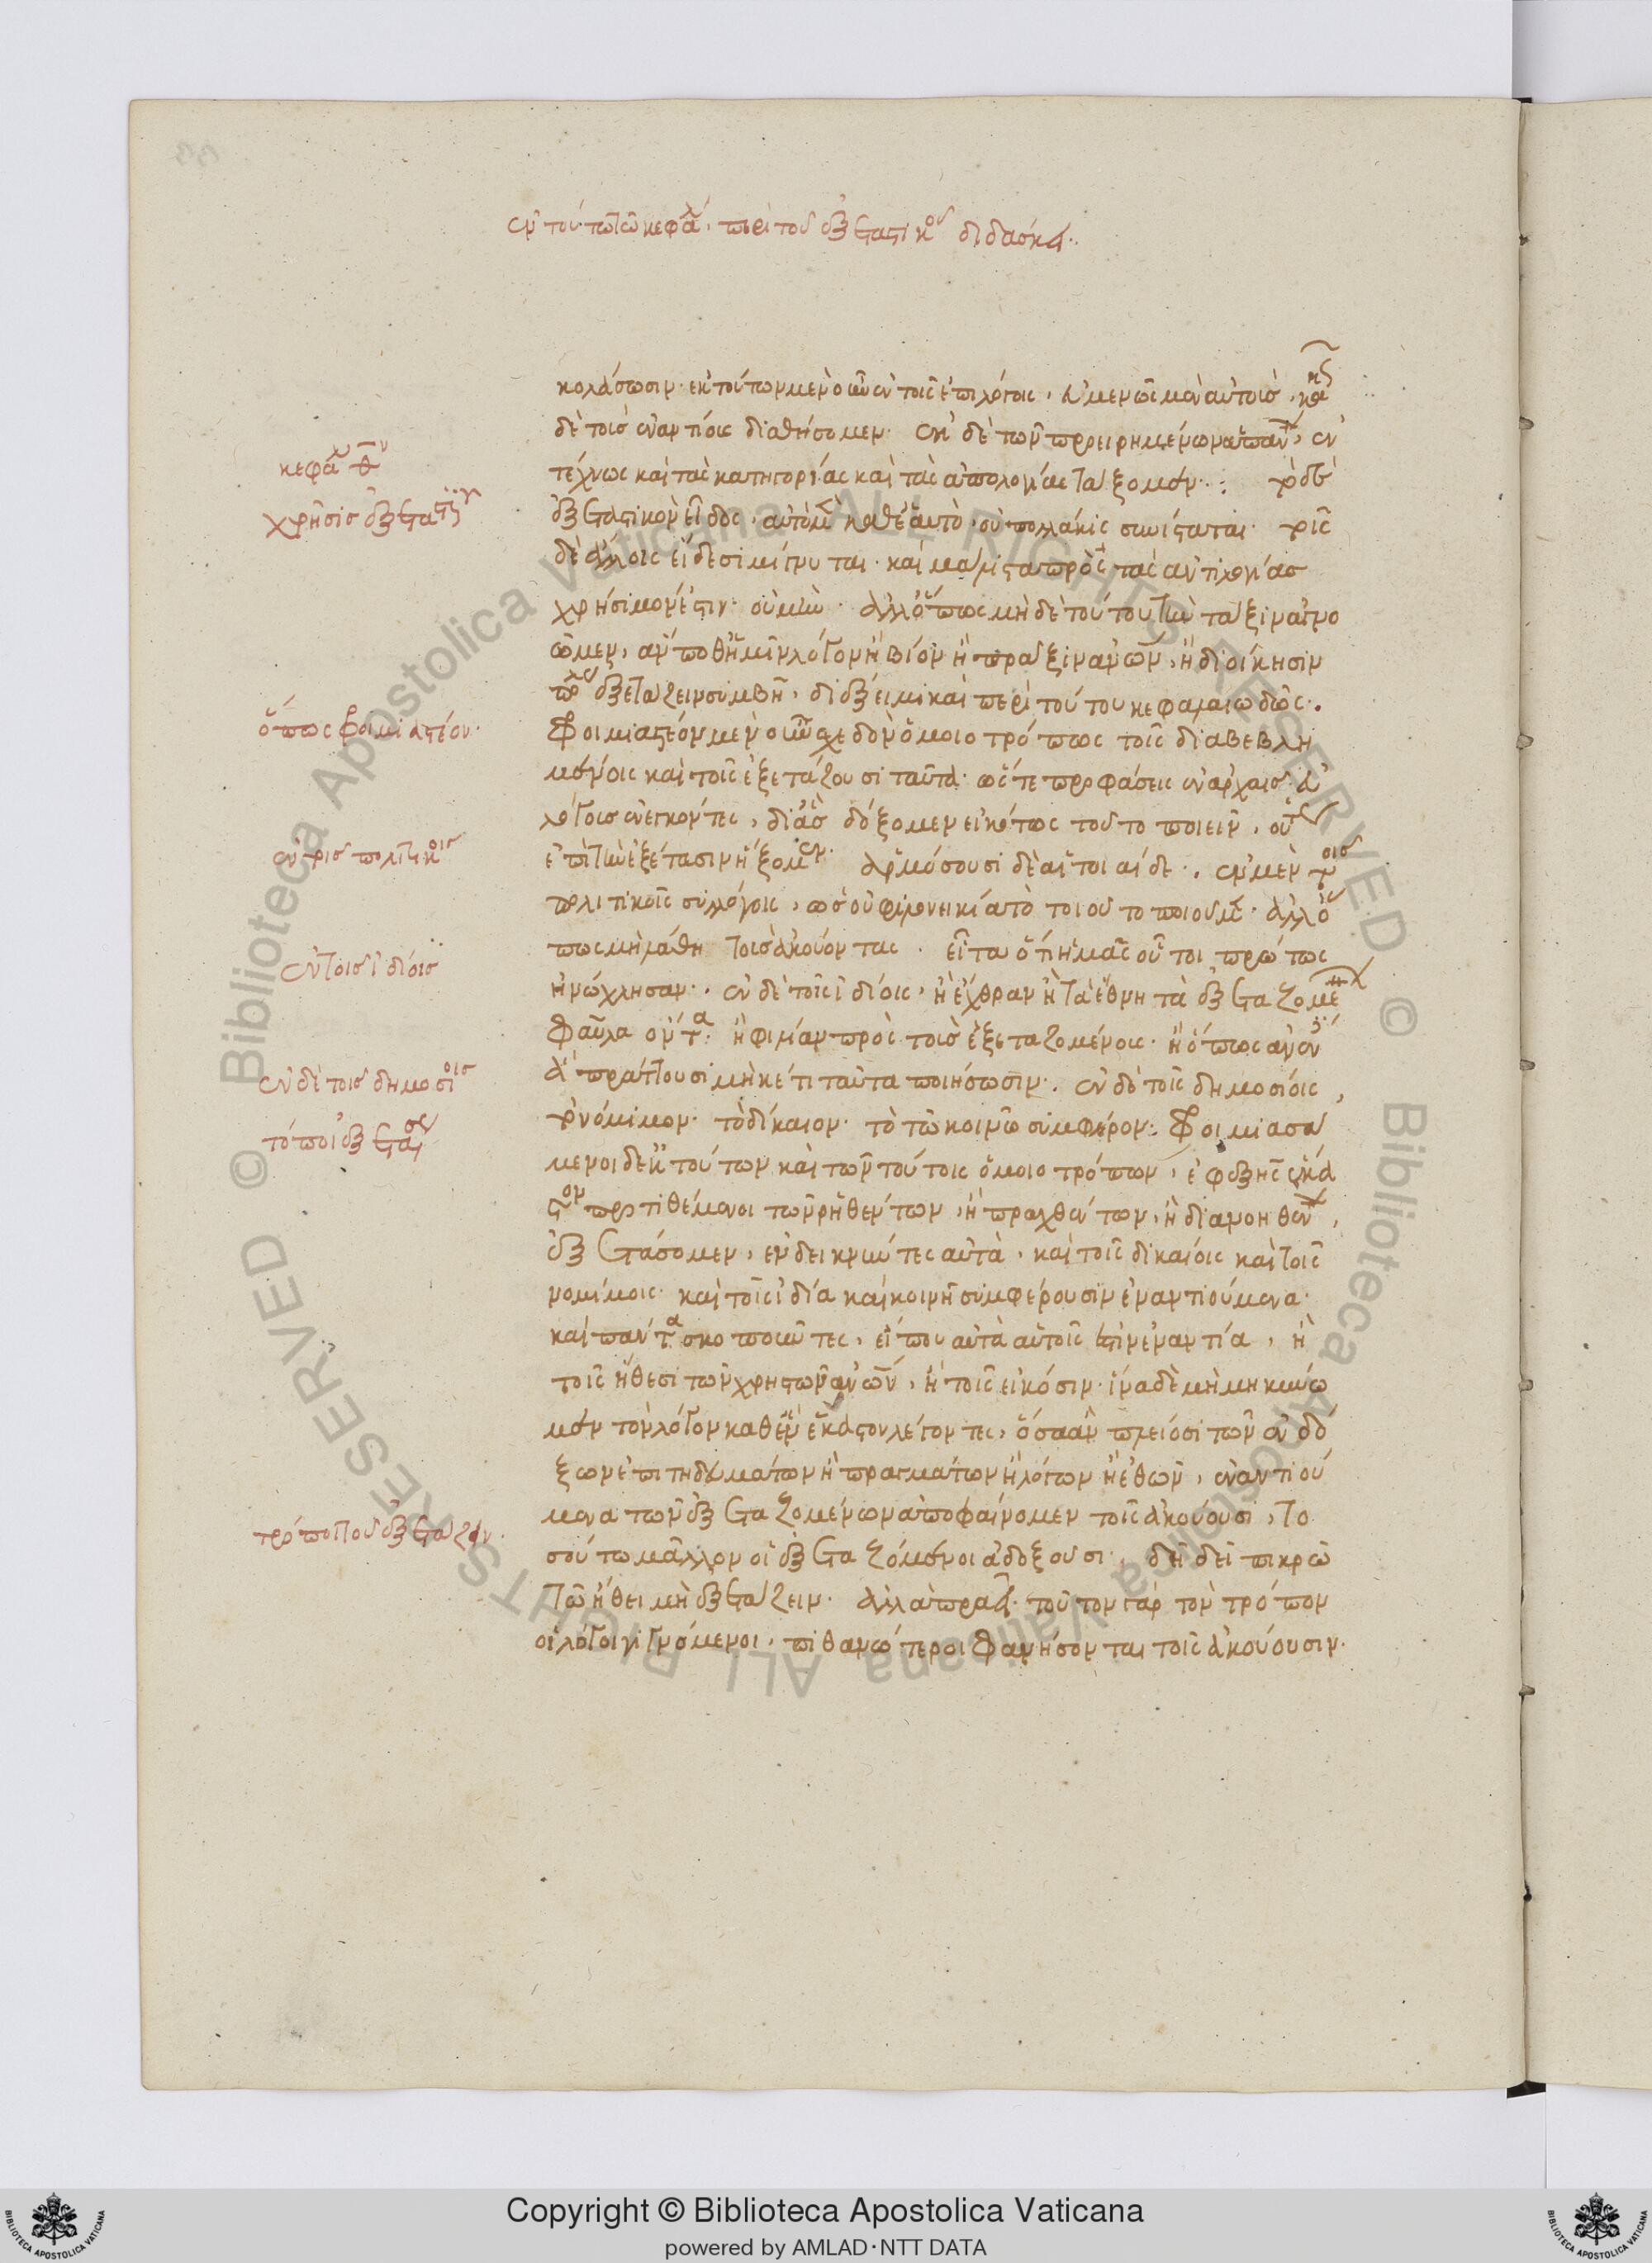 ἐν τούτω τῶ κεφαλ περὶ τοῦ ἐξεταστικοῦ διδάσκει
κολάσωσιν· ἐκ τούτων μὲν οὖν ἐν τοῖς ἐπιλόγοις, εὐμενῶς μὲν αὐτοὺς, κακῶς
δὲ τοὺς ἐναντίους διαθήσομεν· ἐκ δὲ τῶν προειρημένων ἁπάντων, ἐν
τέχνως καὶ τὰς κατηγορίας καὶ τὰς ἀπολογίας τάξομεν· τὸ δὲ
ἐξεταστικὸν εἶδος, αὐτὸ μὲν καθ' ἑαυτὸ, οὐ πολλάκις συνίσταται· τοῖς
δὲ ἄλλοις εἴδεσι μίγνυται· καὶ μάλιστα πρὸς τὰς ἀντιλογίας
χρήσιμόν ἐστιν· οὐ μὴν ἀλλ' ὅπως μηδὲ τούτου τὴν τάξιν ἀγνο
ῶμεν, ἄν ποθ' ἡμῖν λόγον ἢ βίον ἢ πρᾶξιν ἀνων, ἢ διοίκησιν
πόλεως ἐξετάζειν συμβῆ, δίξειμι καὶ περὶ τούτου κεφαλαιωδῶς·
Φροιμιαστέον μὲν οὖν σχεδὸν ὁμοιοτρόπως τοῖς διαβεβλη
μένοις καὶ τοῖς ἐξετάζουσι ταῦτα· ὥστε προφάσεις ἐν ἀρχαῖς εὐ
λόγους ἐνεγκόντες, δι' ἃς δόξομεν εἰκότως τοῦτο ποιεῖν, οὕτως
ἐπὶ τὴν ἐξέτασιν ἥξομεν· ἁρμόσουσι δὲ αἵτοι αἵδε· ἐν μὲν τοῖς
πολιτικοῖς συλλόγοις, ὡς οὐ φιλονεικία τὸ τοιοῦτο ποιοῦμεν· ἀλλ' ὅ
πως μὴ λάθη τοὺς ἀκούοντας· εἶτα ὅτι ἡμᾶς οὗτοι πρώτως
ἠνώχλησαν· ἐν δὲ τοῖς ἰδίοις, ἢ ἔχθραν ἢ τὰ ἔθνη τὰ ἐξεταζομε
φαῦλα ὄντα· ἢ φιλίαν πρὸς τοὺς ἐξεταζομένους· ἢ ὅπως
ἃ πράττουσι μηκέτι ταῦτα ποιήσωσιν· ἐν δὲ τοῖς δημοσίοις,
τὸ νόμιμον· τὸ δίκαιον· τὸ τῶ κοινῶ συμφέρον· Φροιμιασά
μενοι δ' ἐκ τούτων καὶ τῶν τούτοις ὁμοιοτρόπων, ἐφεξῆς ἕκα
στον προτιθέμενοι τῶν ῥηθέντων, ἢ πραχθέντων, ἢ διανοηθέντων,
ἐξετάσομεν, ἐνδεικνύντες αὐτὰ, καὶ τοῖς δικαίοις καὶ τοῖς
νομίμοις· καὶ τοῖς ἰδία καὶ κοινῆ συμφέρουσιν ἐναντιούμενα·
καὶ πάντα σκοποῦντες, εἴ που αὐτὰ αὑτοῖς ἐστὶν ἐναντία, ἢ
τοῖς ἤθεσι τῶν χρηστῶν ἀνων, ἢ τοῖς εἰκόσιν· ἵνα δὲ μὴ μηκύνω
μεν τὸν λόγον καθ' ἓν ἕκαστον λέγοντες, ὅσα ἂν πλείοσι τῶν ἐνδό
ξων ἐπιτηδευμάτων ἢ πραγμάτων ἢ λόγων ἢ ἐθῶν, ἐναντιού
μενα τῶν ἐξεταζομένων ἀποφαίνομεν τοῖς ἀκούουσι, το
σούτω μᾶλλον οἱ ἐξεταζόμενοι ἀδοξοῦσι· δεῖ δεῖ πικρῶ
τῶ ἤθει μὴ ἐξετάζειν· ἀλλὰ πραεῖ· τοῦτον γὰρ τὸν τρόπον
οἱ λόγοι γιγνόμενοι, πιθανώτεροι φανήσονται τοῖς ἀκούουσιν·
κεφάλ
χρῆσις ἐξεταστικοῦ
ὅπως φροιμιαστέον·
ἐν τοῖς πολιτικοῖς
ἐν τοῖς ἰδίοις
ἐν δὲ τοῖς δημοσίοις
τόποι ἐξετάσεως
τρόποι τοῦ ἐξετάζειν·
Copyright © Biblioteca Apostolica Vaticana
powered by AMLAD·NTT DATA
© Biblioteca Apostolica Vaticana ALL RIGHTS RESERVED
© Biblioteca Apostolica Vaticana ALL RIGHTS RESERVED
BIBLIOTECA APOSTOLICA VATICANA
BIBLIOTECA APOSTOLICA VATICANA